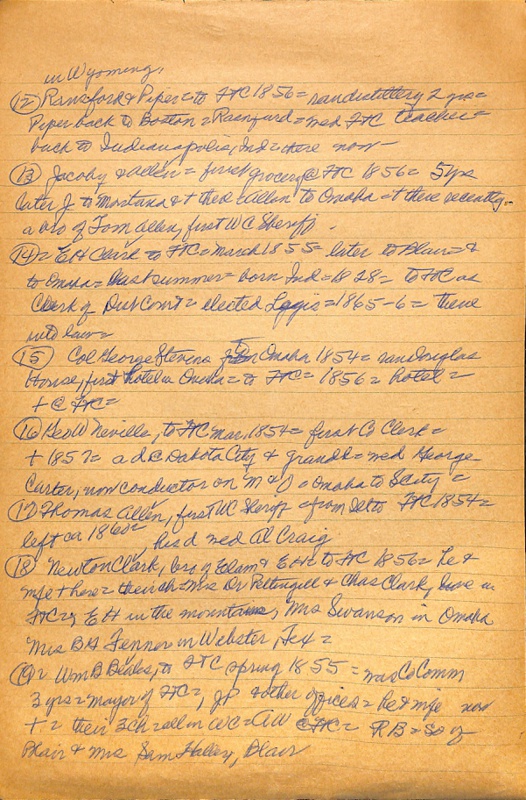 in Wyoming.
(12) Ransford & Piper = to FTC 1856 = ran distillery 2 yrs =
Piper back to Boston = = med FTC teacher =
back to Indianapolis, Ind = there now -
(13) Jacoby & Allen = first grocery @ FTC 1856 = 5 yrs
later J to Montana & + then Allen to Omaha = + there recently =
a bro of Tom Allen, first WC Sheriff.
(14) = E H Clark to FTC = March 1855 = later to Blair = &
to Omaha = last summer = born Ind = 1828 = to FTC as
Clerk of Dist Court = elected Legis = 1865-6 = there
into law =
(15) Col George Stevens Omaha 1854 = ran Douglas
House, first hotel in Omaha = to FTC = 1856 = hotel =
+ @ FTC =
(16) Geo W Neville, to FTC Mar, 1854 = first Co Clerk =
+ 185 = a d @ Dakota City & = med George
Carter, now conductor on = Omaha to S City =
(17) Thomas Allen, first WC Sheriff = from to FTC 1854 =
left ca 1860 =, his d med Al Craig
(18) Newton Clark, bro of Elam & E H = to FTC 1856 = he &
wife + here = their ch = Mrs Dr Pettingill & Chas Clark, live in
FTC = E H in the mountains, Mrs Swanson in Omaha
Mrs B H Fenner in Webster, Tex =
(19) = Wm B Beales, to FTC spring 1855 = was Co Comm
3 yrs = mayor of FTC =, JP & other offices = he & wife now
+ = their 3 ch = all in WC = A W @ FTC = R B = so of
Blair & Mrs Sam Haley, Blair